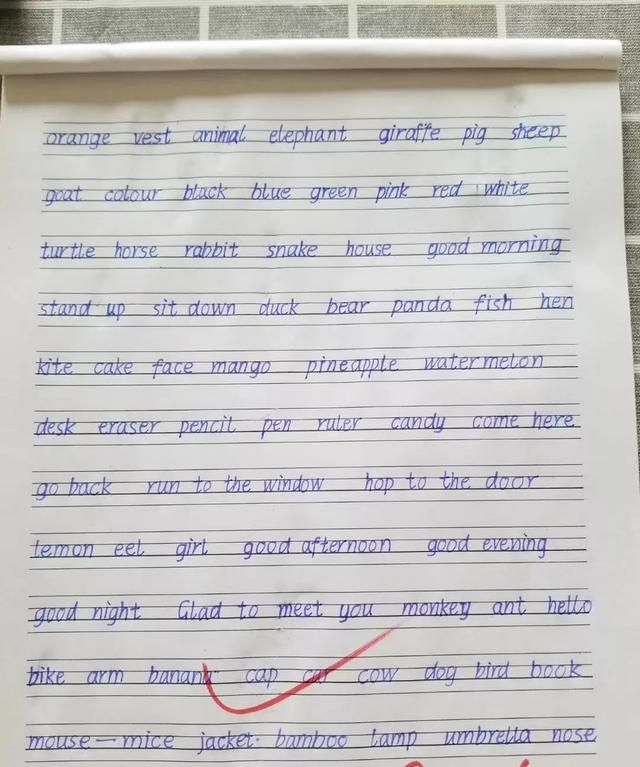 orange vest animal elephant giraffe pig sheep
goat colour black blue green pink red white
turtle horse rabbit snake house good morning
stand up sit down duck bear panda fish hen
kite cake face mango pineapple watermelon
desk eraser pencil pen ruler candy come here
go back run to the window hop to the door
lemon eel girl good afternoon good evening
good night Glad to meet you monkey ant hello
bike arm banana cap car cow dog bird book
mouse—mice jacket. bamboo lamp umbrella nose